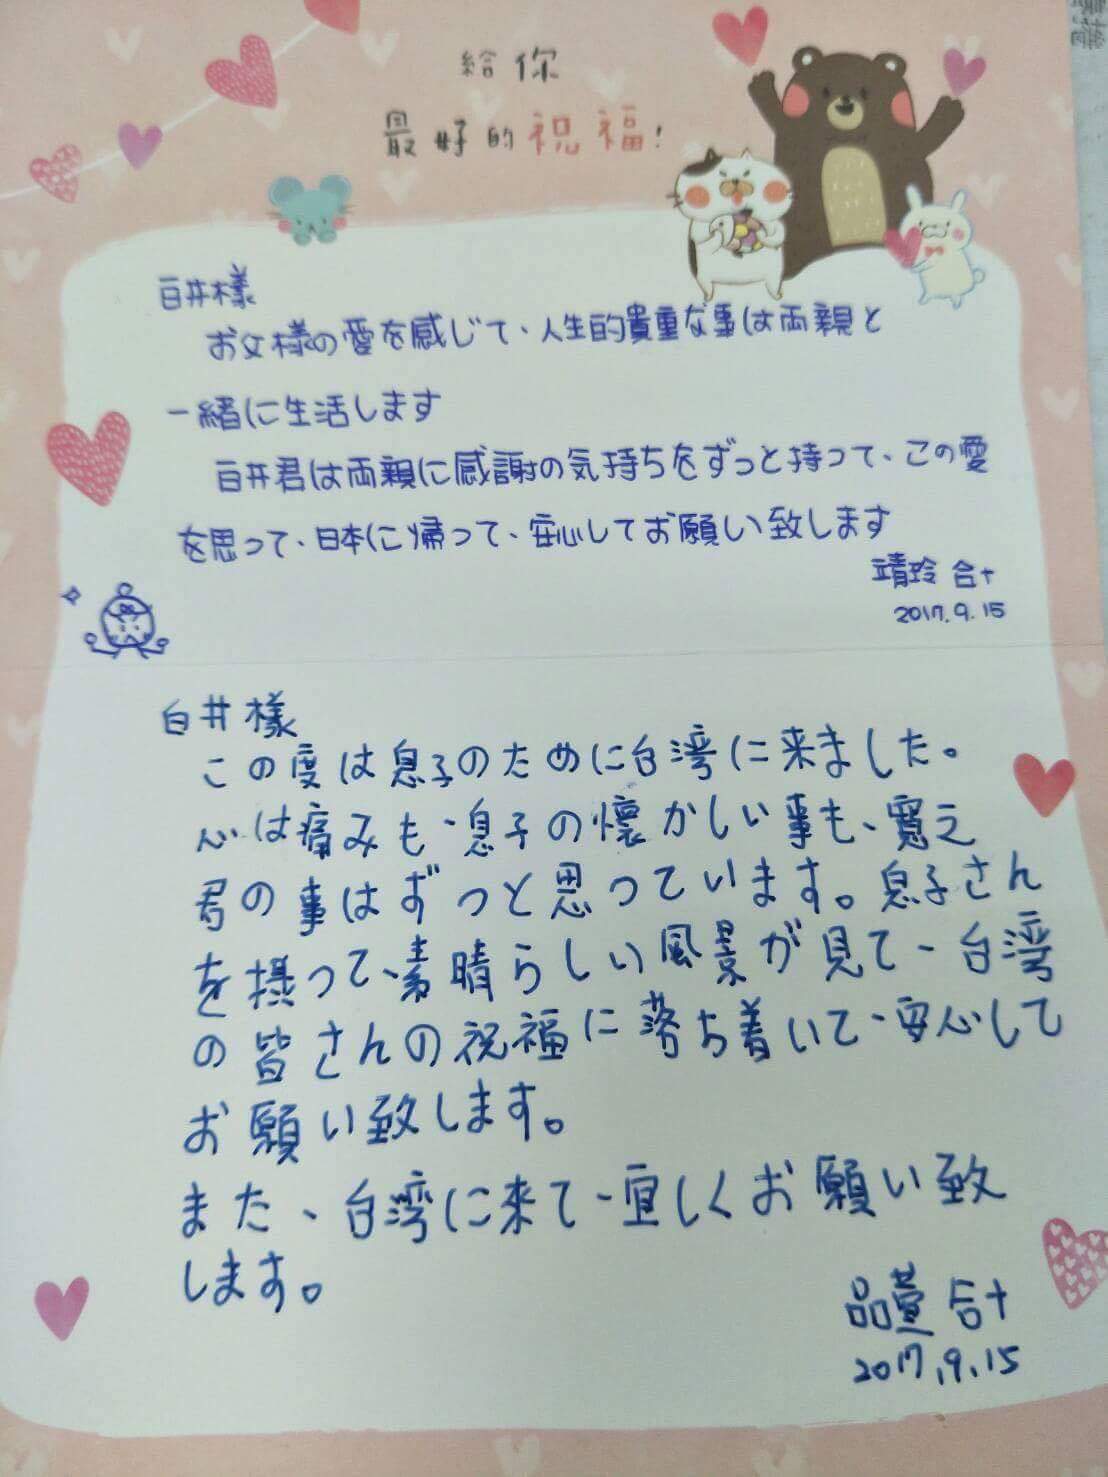 給你
最好的祝福!
白井様
お父様の愛を感じて、人生的貴重な事は両親と
一緒に生活します
白井君は両親に感謝の気持ちをずっと持って、この愛
を思って、日本に帰って、安心してお願い致します
靖玲 合十
2017.9.15
白井様
この度は息子のために台湾に来ました。
心は痛みも、息子の懐かしい事も、寛之
君の事はずっと思っています。息子さん
を って、素晴らしい風景が見て、台湾
の皆さんの祝福に落ち着いて、安心して
お願い致します。
また、台湾に来て、宜しくお願い致
します。
品萱 合十
2017.9.15